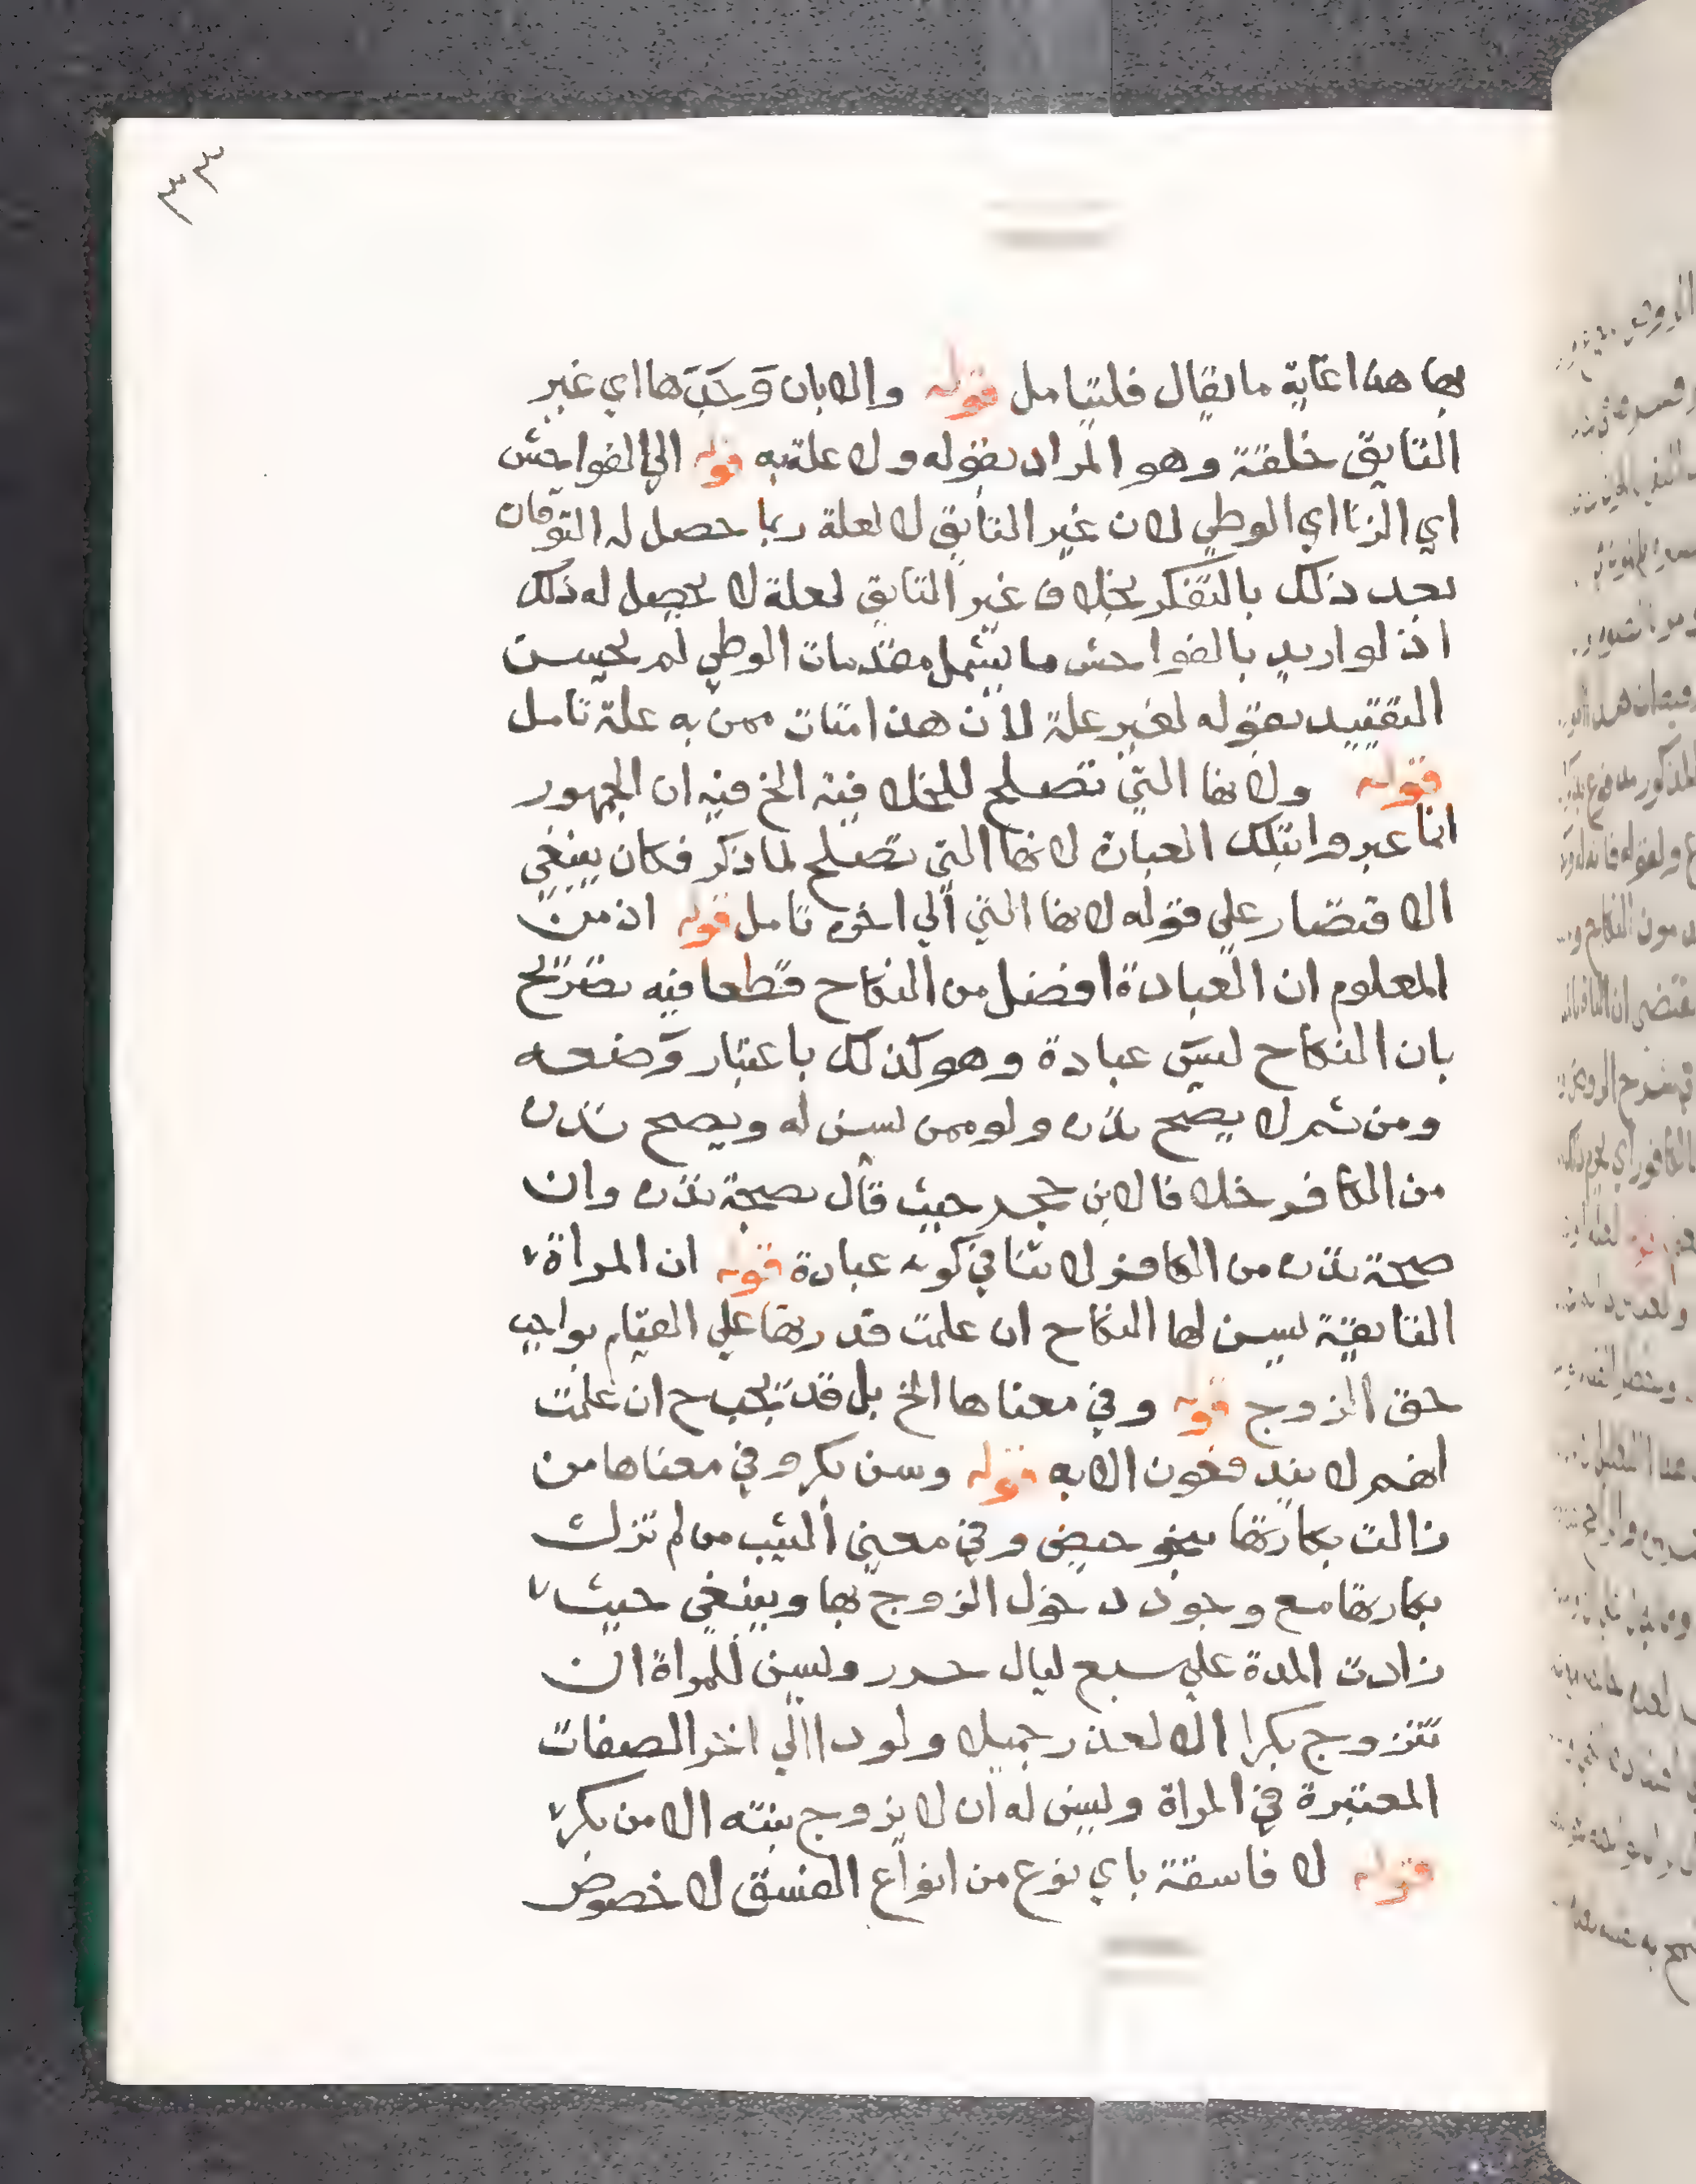 ٣٣
بها هذا غاية ما يقال فليتامل قوله والا بان وجدها اي غير
التايق خلقة وهو المراد بقوله ولا علة به قوله الي الفواحش
اي الزنا اي الوطي لان غير التايق لا لعلة ربما حصل له التوقان
بعد ذلك بالتفكر بخلاف غير التايق لعلة لا يحصل له ذلك
اذ لو اريد بالفواحش ما يشمل مقدمات الوطي لم يحسن
التقييد بقوله لغير علة لان هذا متات ممن به علة تامل
قوله ولانها التي تصلح للخلافية الخ فيه ان الجمهور
انما عبروا بتلك العبارة لانها التي تصلح لما ذكر فكان ينبغي
الاقتصار علي قوله لانها التي الي اخره تامل قوله اذ من
المعلوم ان العبادة افضل من النكاح قطعا فيه تصريح
بان النكاح ليس عبادة وهو كذلك باعتبار وضعه
ومن ثم لا يصح نذره ولو ممن يسن له ويصح نذره
من الكافر خلافا لابن حجر حيث قال بصحة نذره وان
صحة نذره من الكافر لا تنافي كونه عبادة قوله ان المراة
التايقة يسن لها النكاح ان علمت قدرتها علي القيام بواجب
حق الزوج قوله وفي معناها الخ بل قد يجب ح ان علمت
انهم لا يندفعون الا به قوله وسن بكر وفي معناها من
زالت بكارتها بنحو حيض وفي معني الثيب من لم تزل
بكارتها مع وجود دخول الزوج بها وينبغي حيث
زادت المدة علي سبع ليال حرر ويسن للمراة ان
تتزوج بكرا الا لعذر جميلا ولودا الي اخر الصفات
المعتبرة في المراة ويسن له ان لا يزوج بنته الا من بكر
قوله لا فاسقة باي نوع من انواع الفسق لا خصوص